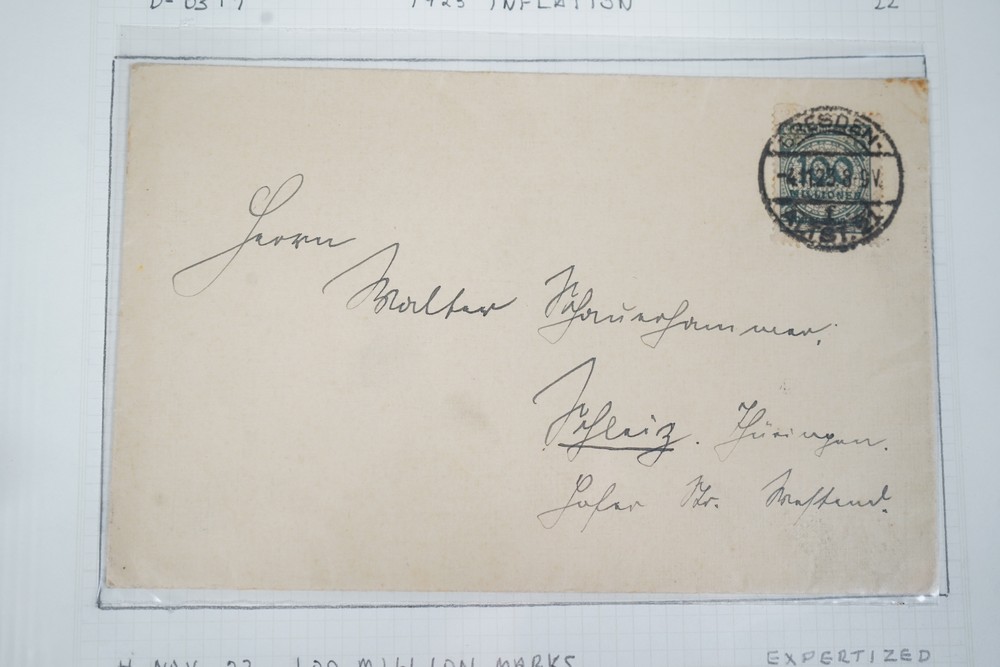 1923 INFLATION
22
DRESDEN-
100
-4.11.23.8-9V.
MILLIONEN
ALTST. 21
Herrn
Walter Schauerhammer,
Schleiz. Thüringen.
Hofer Str. Westend.
4 NOV 23 100 MILLION MARKS
EXPERTIZED